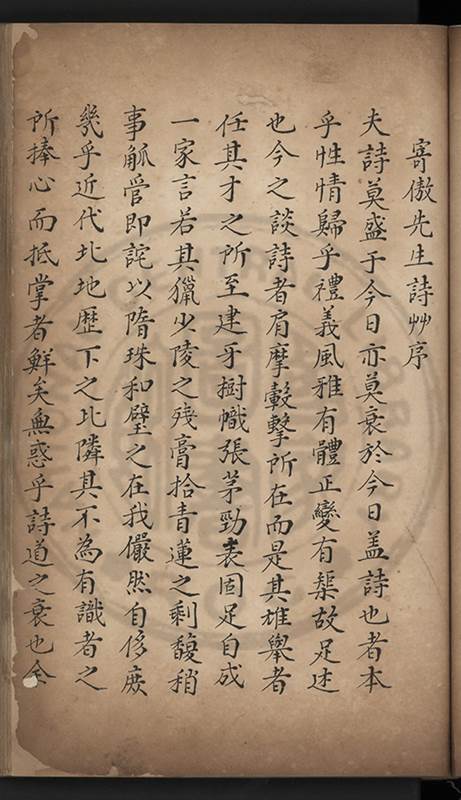 寄傲先生詩艸序
夫詩莫盛于今日亦莫衰於今日盖詩也者本
乎性情歸乎禮義風雅有體正變有槼故足述
也今之談詩者肩摩轂擊所在而是其雄舉者
任其才之所至建牙樹幟張茅勁表固足自成
一家言若其獵少陵之殘膏拾青蓮之剩馥稍
事觚管即詫以隋珠和璧之在我儼然自侈庻
幾乎近代北地歴下之比隣其不為有識者之
所捧心而抵掌者鮮矣無惑乎詩道之衰也全